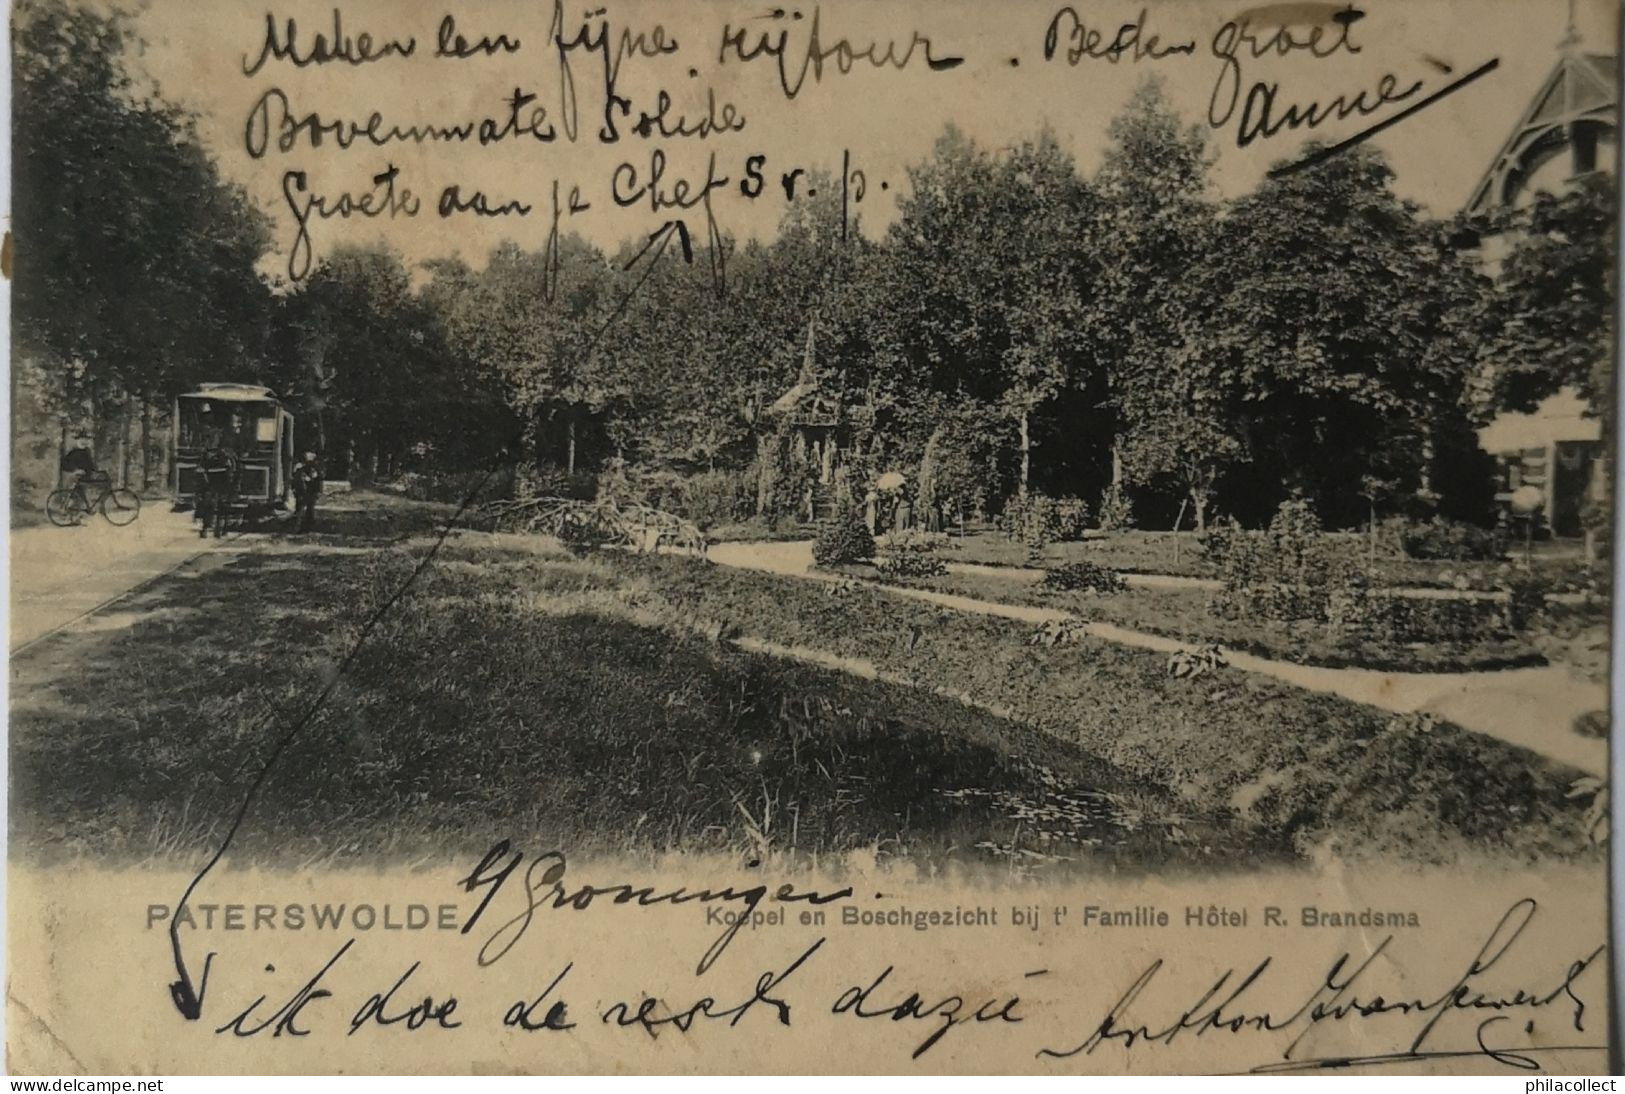 Maken een fijne rijtour. Besten groet
Anne
Bovenmate Solide
Groete aan je Chef S v. p.
b/ Groningen.
PATERSWOLDE
Koepel en Boschgezicht bij t' Familie Hôtel R. Brandsma
ik doe de rest dazu
Anthon
philacollect